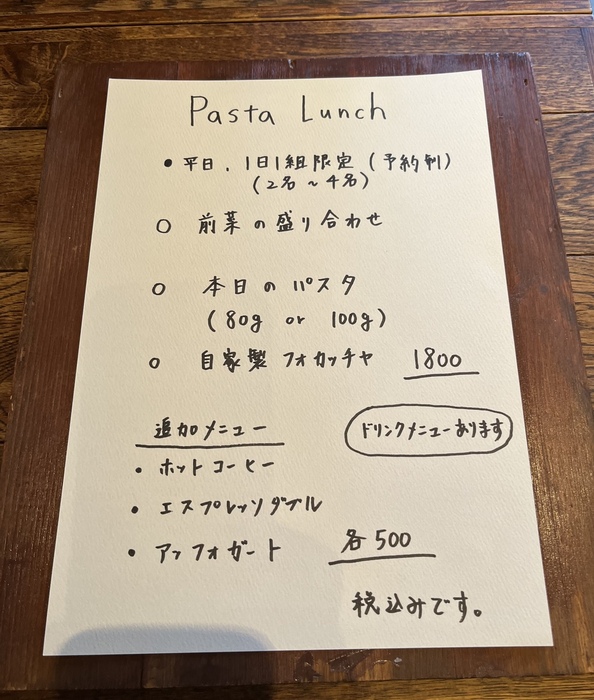 Pasta Lunch
• 平日、1日1組限定(予約制)
(2名~4名)
○ 前菜の盛り合わせ
○ 本日のパスタ
(80g or 100g)
○ 自家製フォカッチャ 1800
追加メニュー
ドリンクメニューあります
• ホットコーヒー
• エスプレッソダブル
• アッフォガート 各500
税込みです。